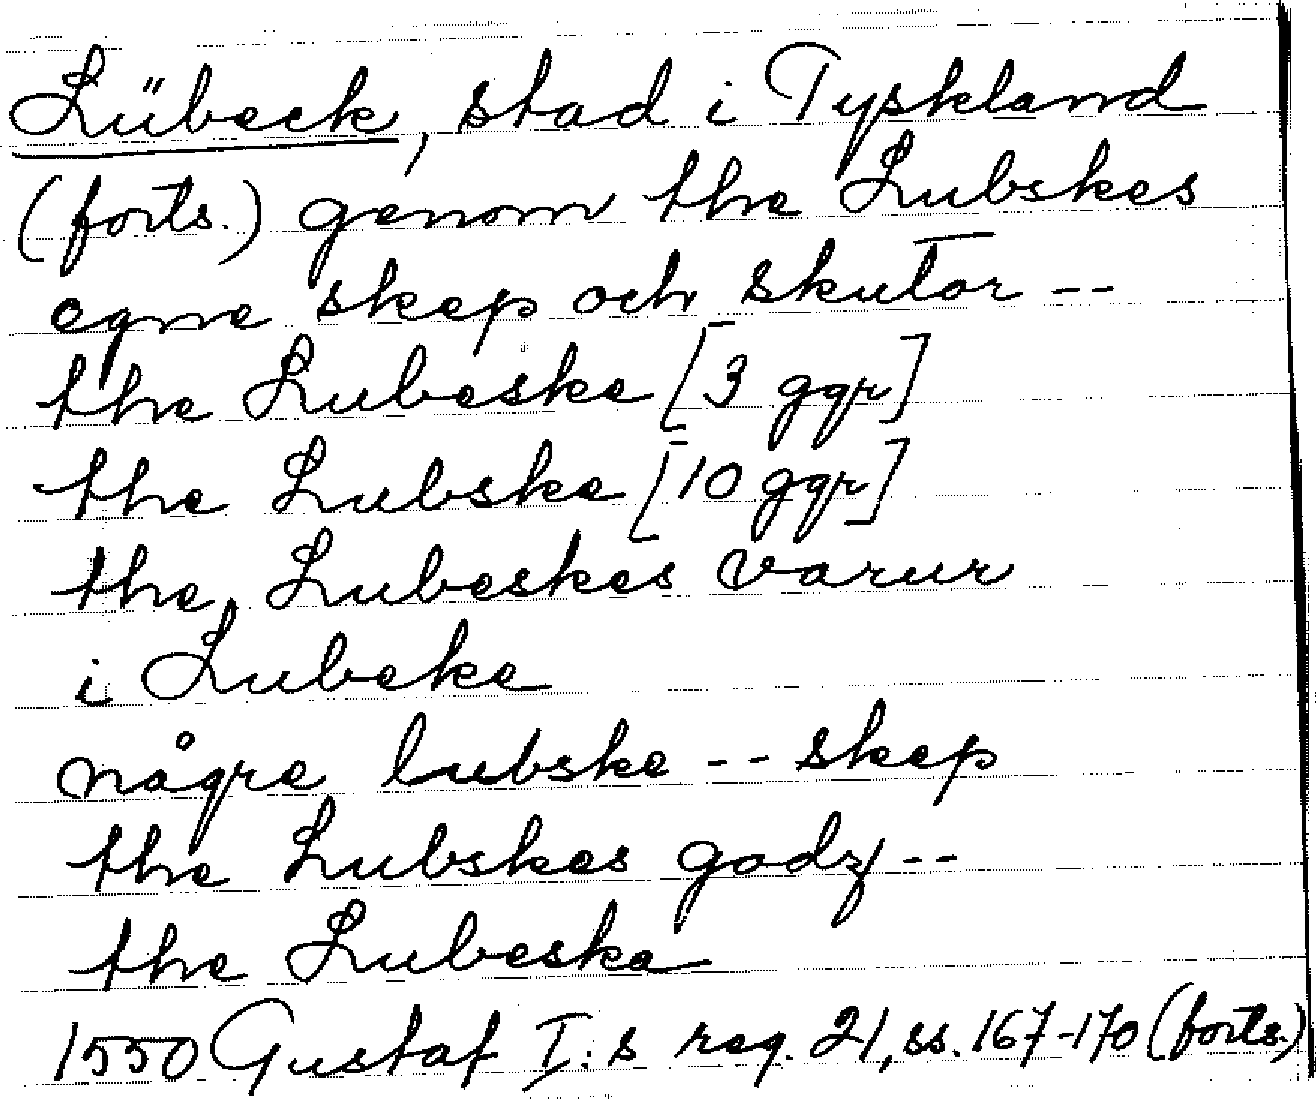 Lübeck, stad i Tyskland
(forts.) genom the Lubskes
egne skep och skutor --
the Lubeske [3 ggr]
the Lubske [10 ggr]
the Lubeskes varur
i Lubeke
någre lubske -- skep
the Lubskes godz --
the Lubeska
1550 Gustaf I:s reg. 21, ss. 167-170 (forts.)